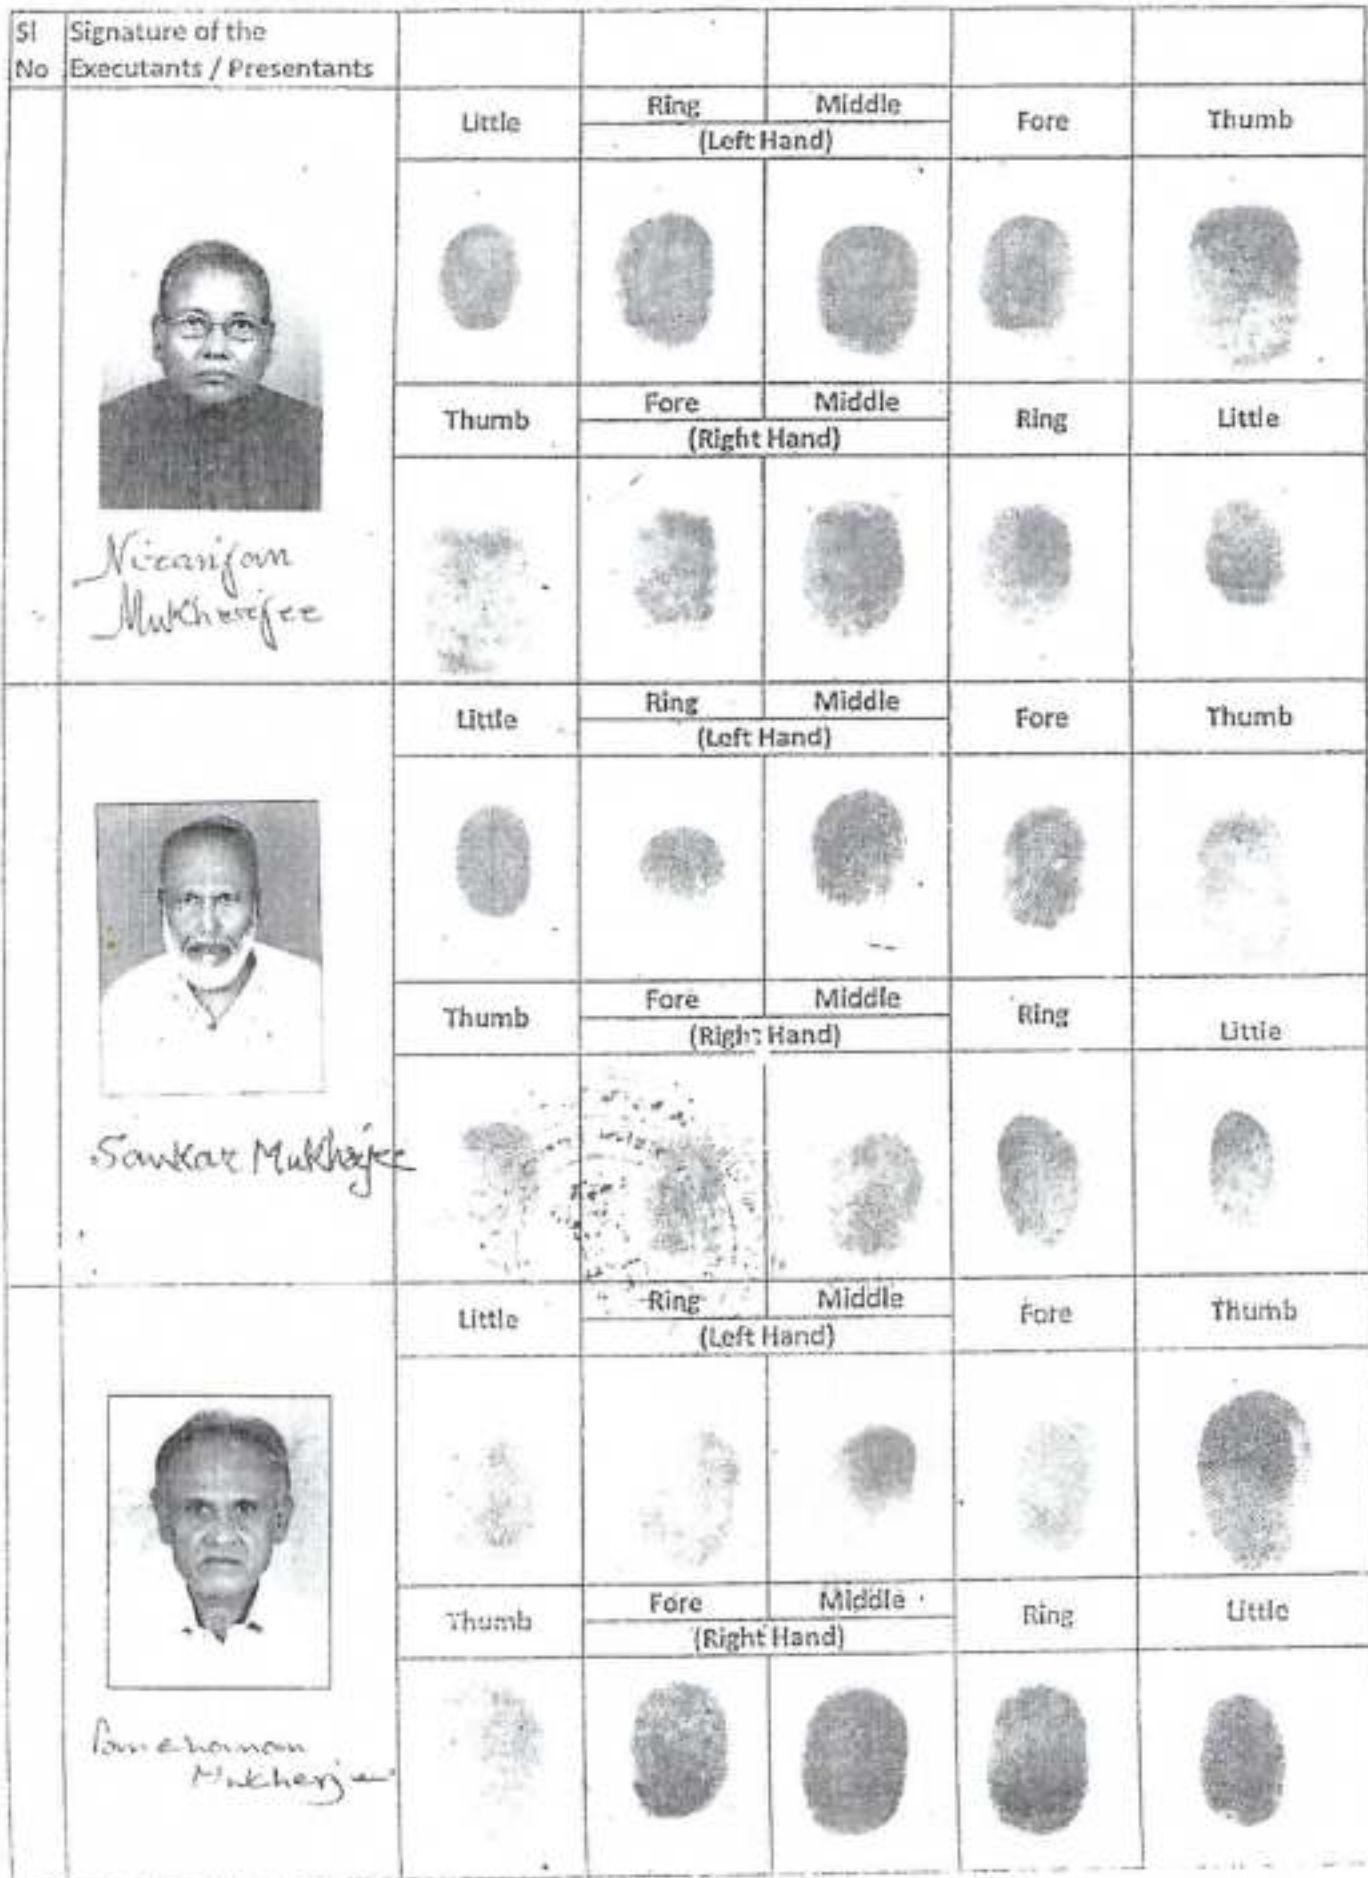 Sl Signature of the
No Executants / Presentants
Little Ring Middle Fore Thumb
(Left Hand)
Thumb Fore Middle Ring Little
(Right Hand)
Niranjan
Mukherjee
Little Ring Middle Fore Thumb
(Left Hand)
Thumb Fore Middle Ring Little
(Right Hand)
Sankar Mukherjee
Little Ring Middle Fore Thumb
(Left Hand)
Thumb Fore Middle Ring Little
(Right Hand)
Mukherjee